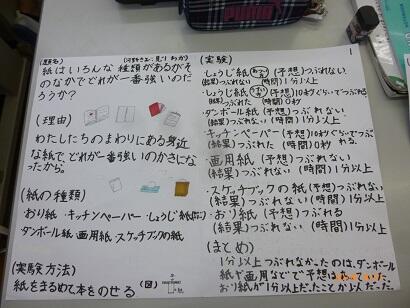 (題名)
紙はいろんな種類があるがそ
のなかでどれが一番強いのだ
ろうか?
(理由)
わたしたちのまわりにある身近
な紙で、どれが一番強いのか気に
なったから。
(紙の種類)
おり紙・キッチンペーパー・しょうじ紙
ダンボール紙・画用紙・スケッチブックの紙
(実験方法)
紙をまるめて本をのせる
(図)
1
(実験)
・しょうじ紙 (予想)つぶれない
(結果)つぶれない (時間)1分以上
・しょうじ紙 (予想)10秒ぐらいでつぶれる
(結果)つぶれた (時間)0秒
・ダンボール紙 (予想)つぶれない
(結果)つぶれない (時間)1分以上
・キッチンペーパー (予想)10秒ぐらいでつぶ
れる
(結果)つぶれた (時間)0秒
・画用紙 (予想)つぶれない
(結果)つぶれない (時間)1分以上
・スケッチブックの紙 (予想)つぶれない
(結果)つぶれない (時間)1分以上
・おり紙 (予想)つぶれる
(結果)つぶれない (時間)1分以上
(まとめ)
1分以上つぶれなかったのは、ダンボール
紙や画用紙などで予想
おり紙が1分以上だったことがい だった。
PUMA